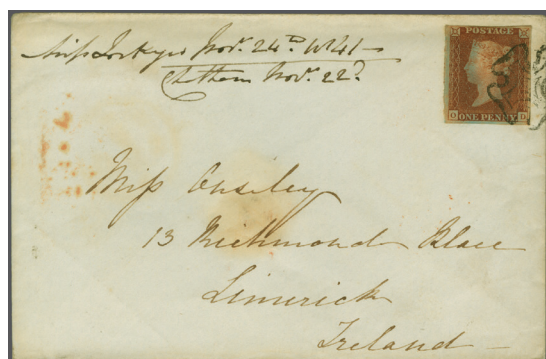 Nov. 24th 1841
Chatham Nov. 22d
POSTAGE
ONE PENNY
Miss Ouseley
13 Richmond Place
Limerick
Ireland